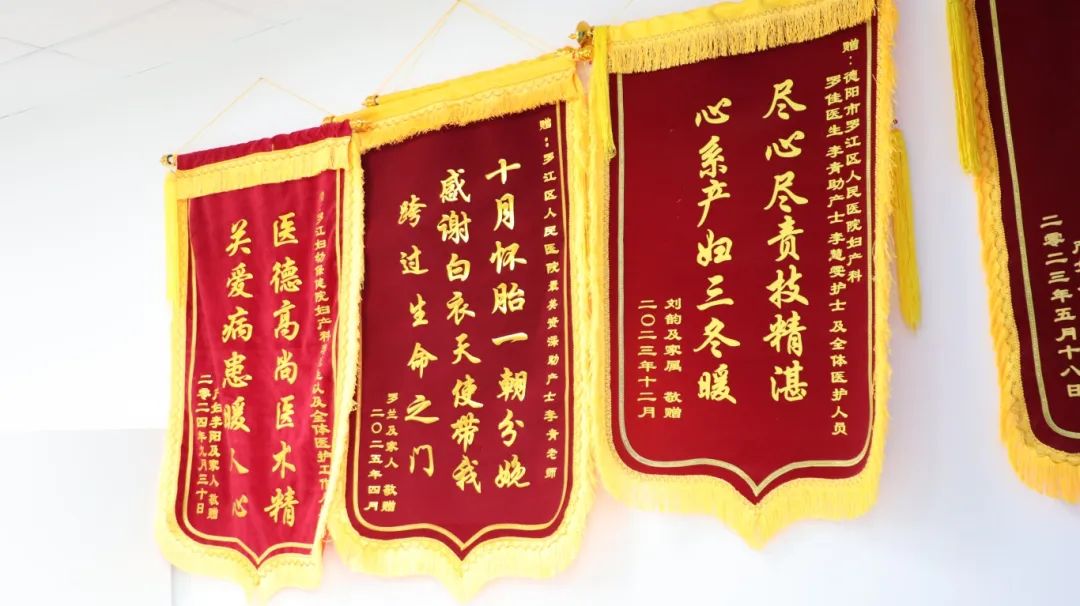 罗江妇幼保健院妇产科 及全体医护工作
医德高尚医术精
关爱病患暖人心
产妇李阳及家人 敬赠
二零二四年九月三十日
赠：罗江区人民医院最美资深助产士李青老师
十月怀胎一朝分娩
感谢白衣天使带我
跨过生命之门
罗兰及家人 敬赠
二〇二五年四月
赠：德阳市罗江区人民医院妇产科
罗佳医生 李青助产士 李慧雯护士 及全体医护人员
尽心尽责技精湛
心系产妇三冬暖
刘韵及家属 敬赠
二〇二三年十二月
二零二三年五月十八日